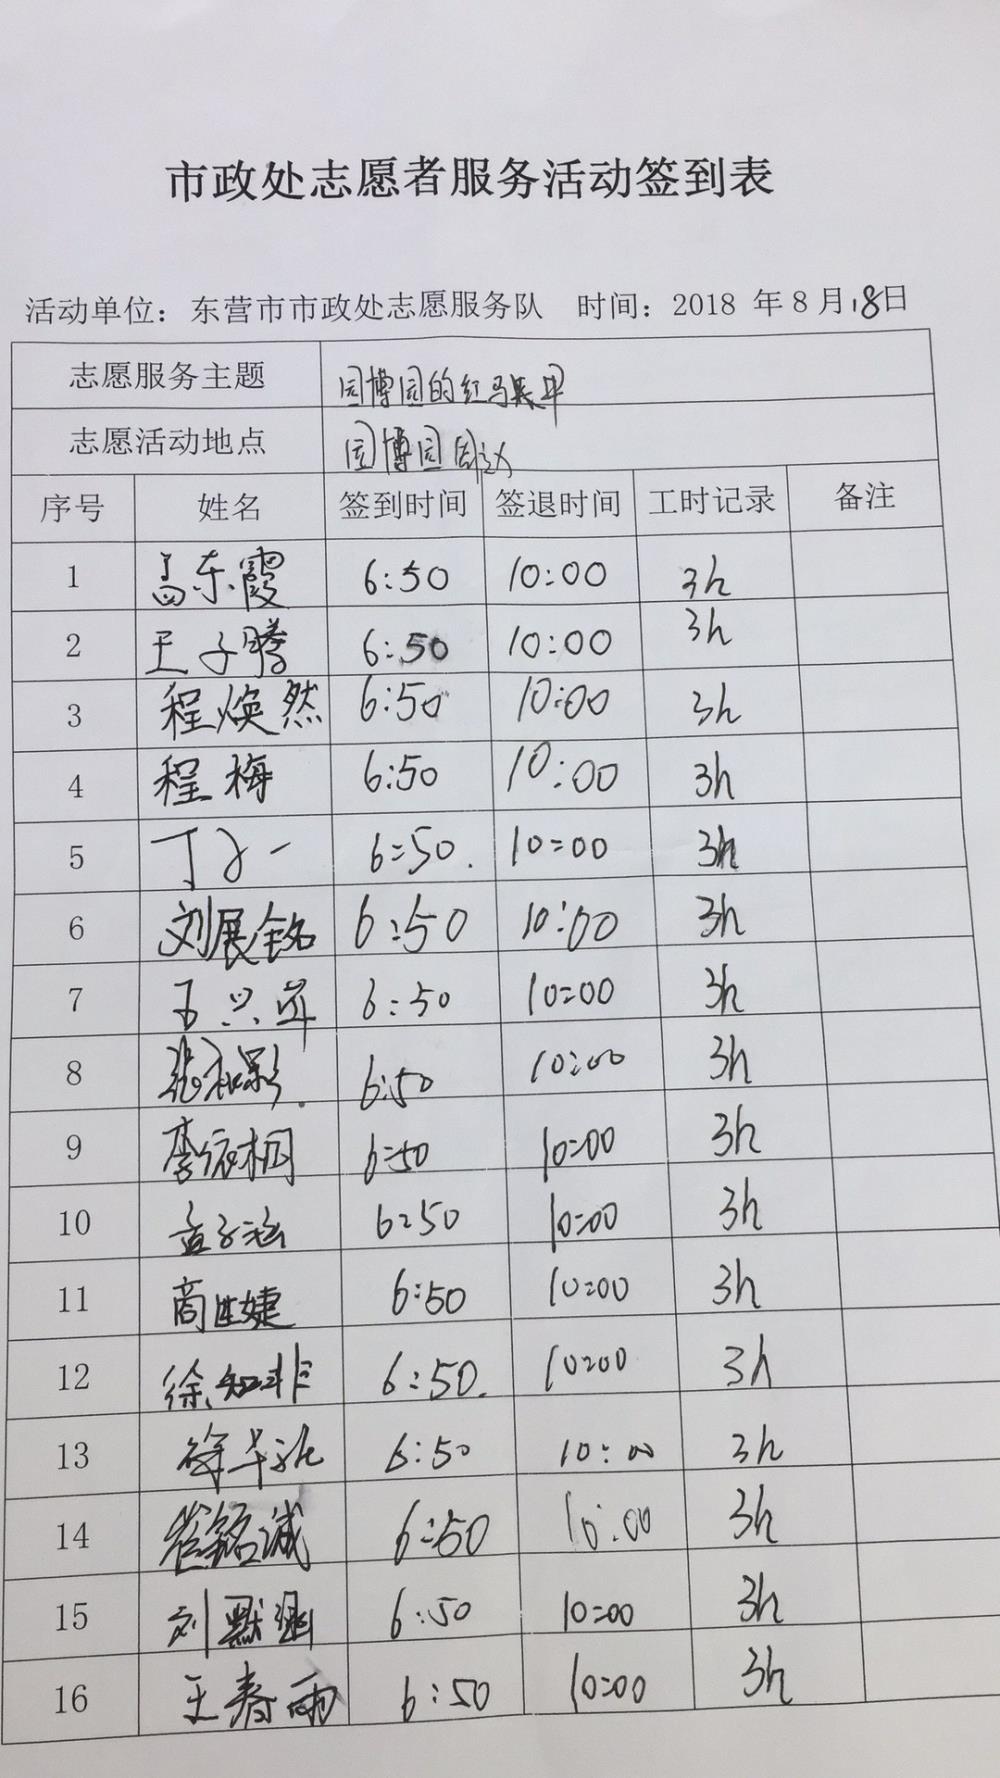 市政处志愿者服务活动签到表
活动单位：东营市市政处志愿服务队 时间：2018 年 8 月 18 日
志愿服务主题 园博园的红马甲
志愿活动地点 园博园周边
序号 姓名 签到时间 签退时间 工时记录 备注
1 高东霞 6:50 10:00 3h
2 王子腾 6:50 10:00 3h
3 程焕然 6:50 10:00 3h
4 程梅 6:50 10:00 3h
5 丁子一 6:50. 10:00 3h
6 刘展铭 6:50 10:00 3h
7 6:50 10:00 3h
8 6:50 10:00 3h
9 李依桐 6:50 10:00 3h
10 孟子涵 6:50 10:00 3h
11 商 婕 6:50 10:00 3h
12 徐知非 6:50. 10:00 3h
13 6:50 10:00 3h
14 崔铭诚 6:50 10:00 3h
15 刘默涵 6:50 10:00 3h
16 王春雨 6:50 10:00 3h